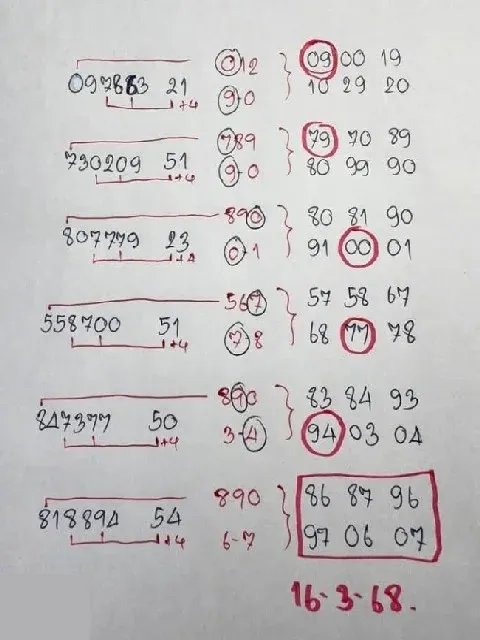 012 09 00 19
097863 21 +4 9-0 10 29 20
789 79 70 89
730209 51 +4 9-0 80 99 90
890 80 81 90
807779 23 +4 0-1 91 00 01
567 57 58 67
558700 51 +4 7-8 68 77 78
890 83 84 93
847377 50 +4 3-4 94 03 04
890 86 87 96
818894 54 +4 6-7 97 06 07
16-3-68.